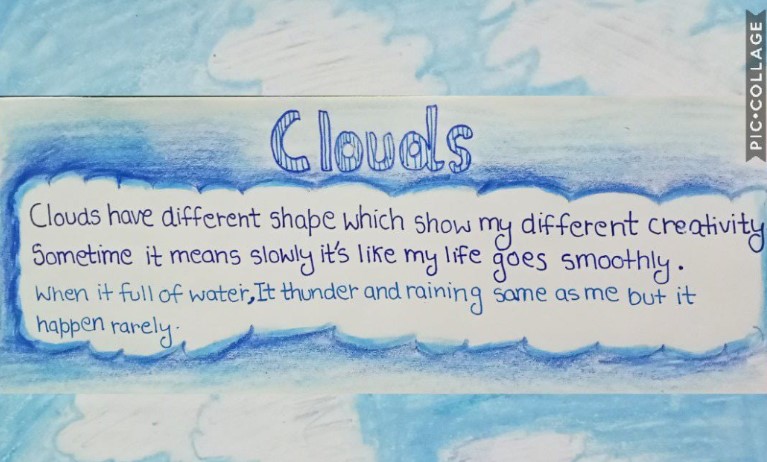 PIC•COLLAGE
Clouds
Clouds have different shape which show my different creativity
Sometime it means slowly it's like my life goes smoothly.
When it full of water,It thunder and raining same as me but it
happen rarely.